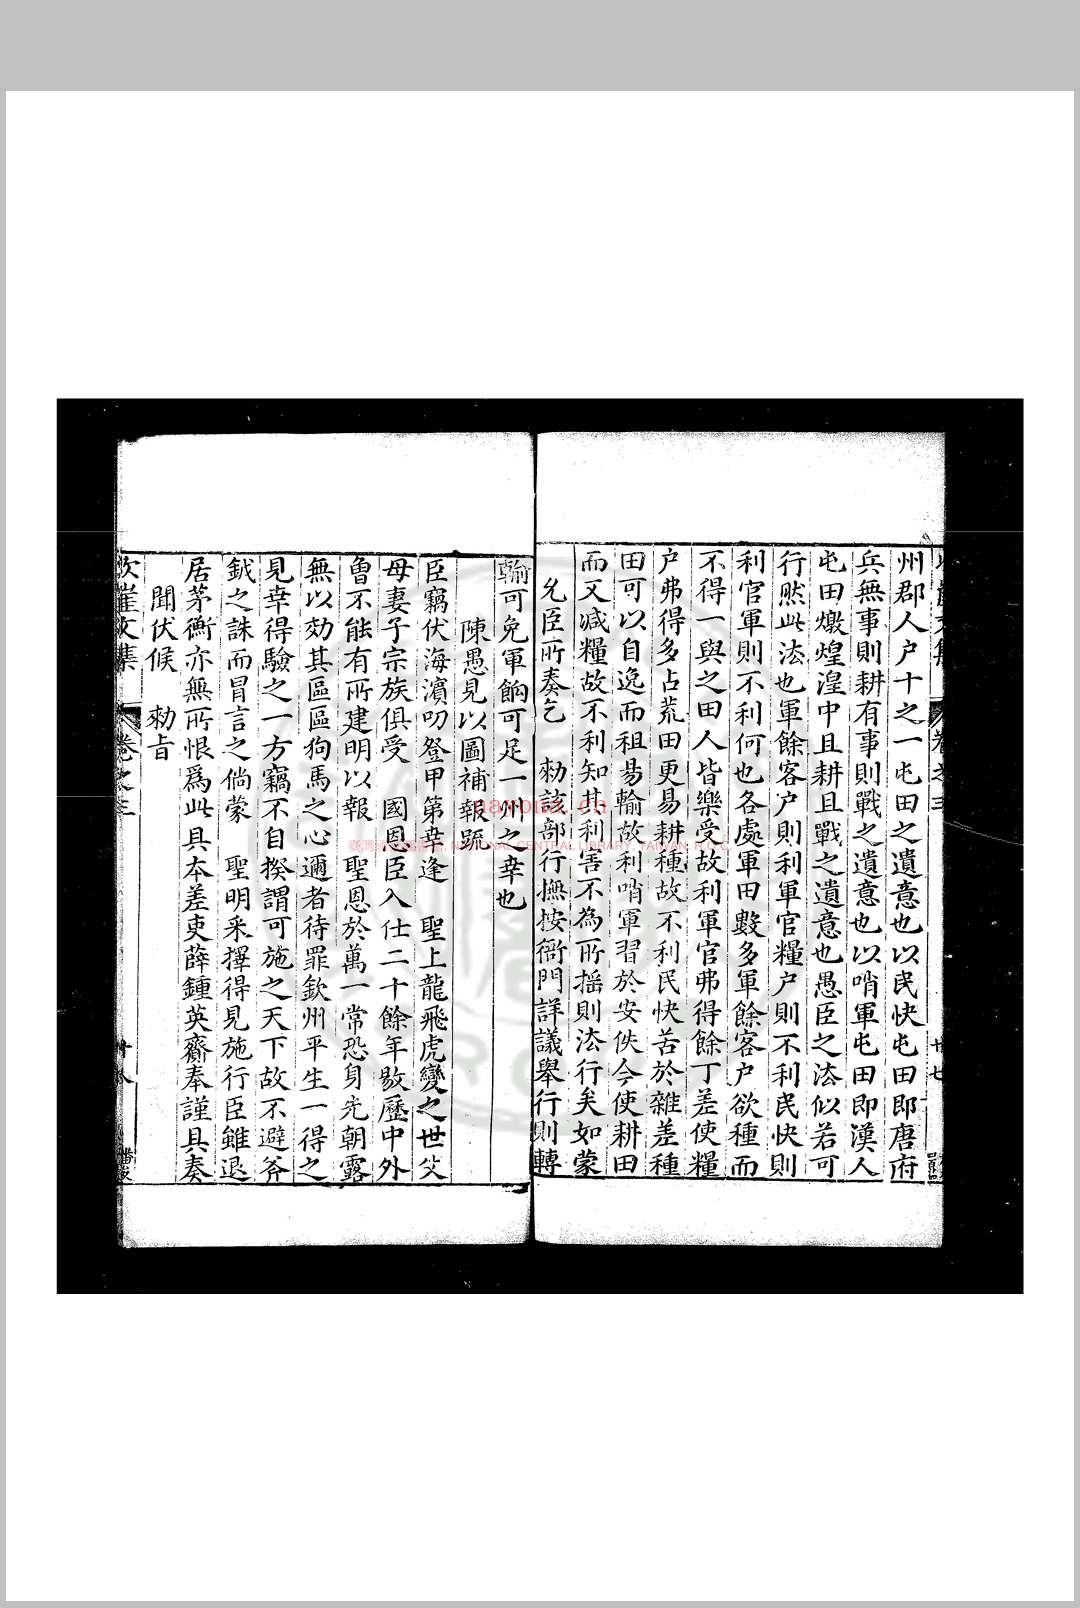 州郡人户十之一屯田之遺意也以民快屯田即唐府
兵無事則耕有事則戰之遺意也以哨軍屯田即漢人
屯田燉煌湟中且耕且戰之遺意也愚臣之法似若可
行然此法也軍餘客户則利軍官糧户則不利民快則
利官軍則不利何也各處軍田數多軍餘客户欲種而
不得一與之田人皆樂受故利軍官弗得餘丁差使糧
户弗得多占荒田更易耕種故不利民快苦於雜差種
田可以自逸而租易輸故利哨軍習於安佚今使耕田
而又减糧故不利知其利害不為所摇則法行矣如蒙
允臣所奏乞 勑該部行撫按衙門詳議舉行則轉
輸可免軍餉可足一州之幸也
陳愚見以圖補報疏
臣竊伏海濵叨登甲第幸逢 聖上龍飛虎變之世父
母妻子宗族俱受 國恩臣入仕二十餘年敭歷中外
曾不能有所建明以報 聖恩於萬一常恐身先朝露
無以効其區區狗馬之心邇者待罪欽州平生一得之
見幸得驗之一方竊不自揆謂可施之天下故不避斧
鉞之誅而冒言之倘蒙 聖明采擇得見施行臣雖退
居茅衡亦無所恨爲此具本差吏薛鍾英齎奉謹具奏
聞伏候 勑旨
次崖文集 卷之三 廿八
nayona.cn
NATIONAL CENTRAL LIBRARY, TAIWAN, R.O.C